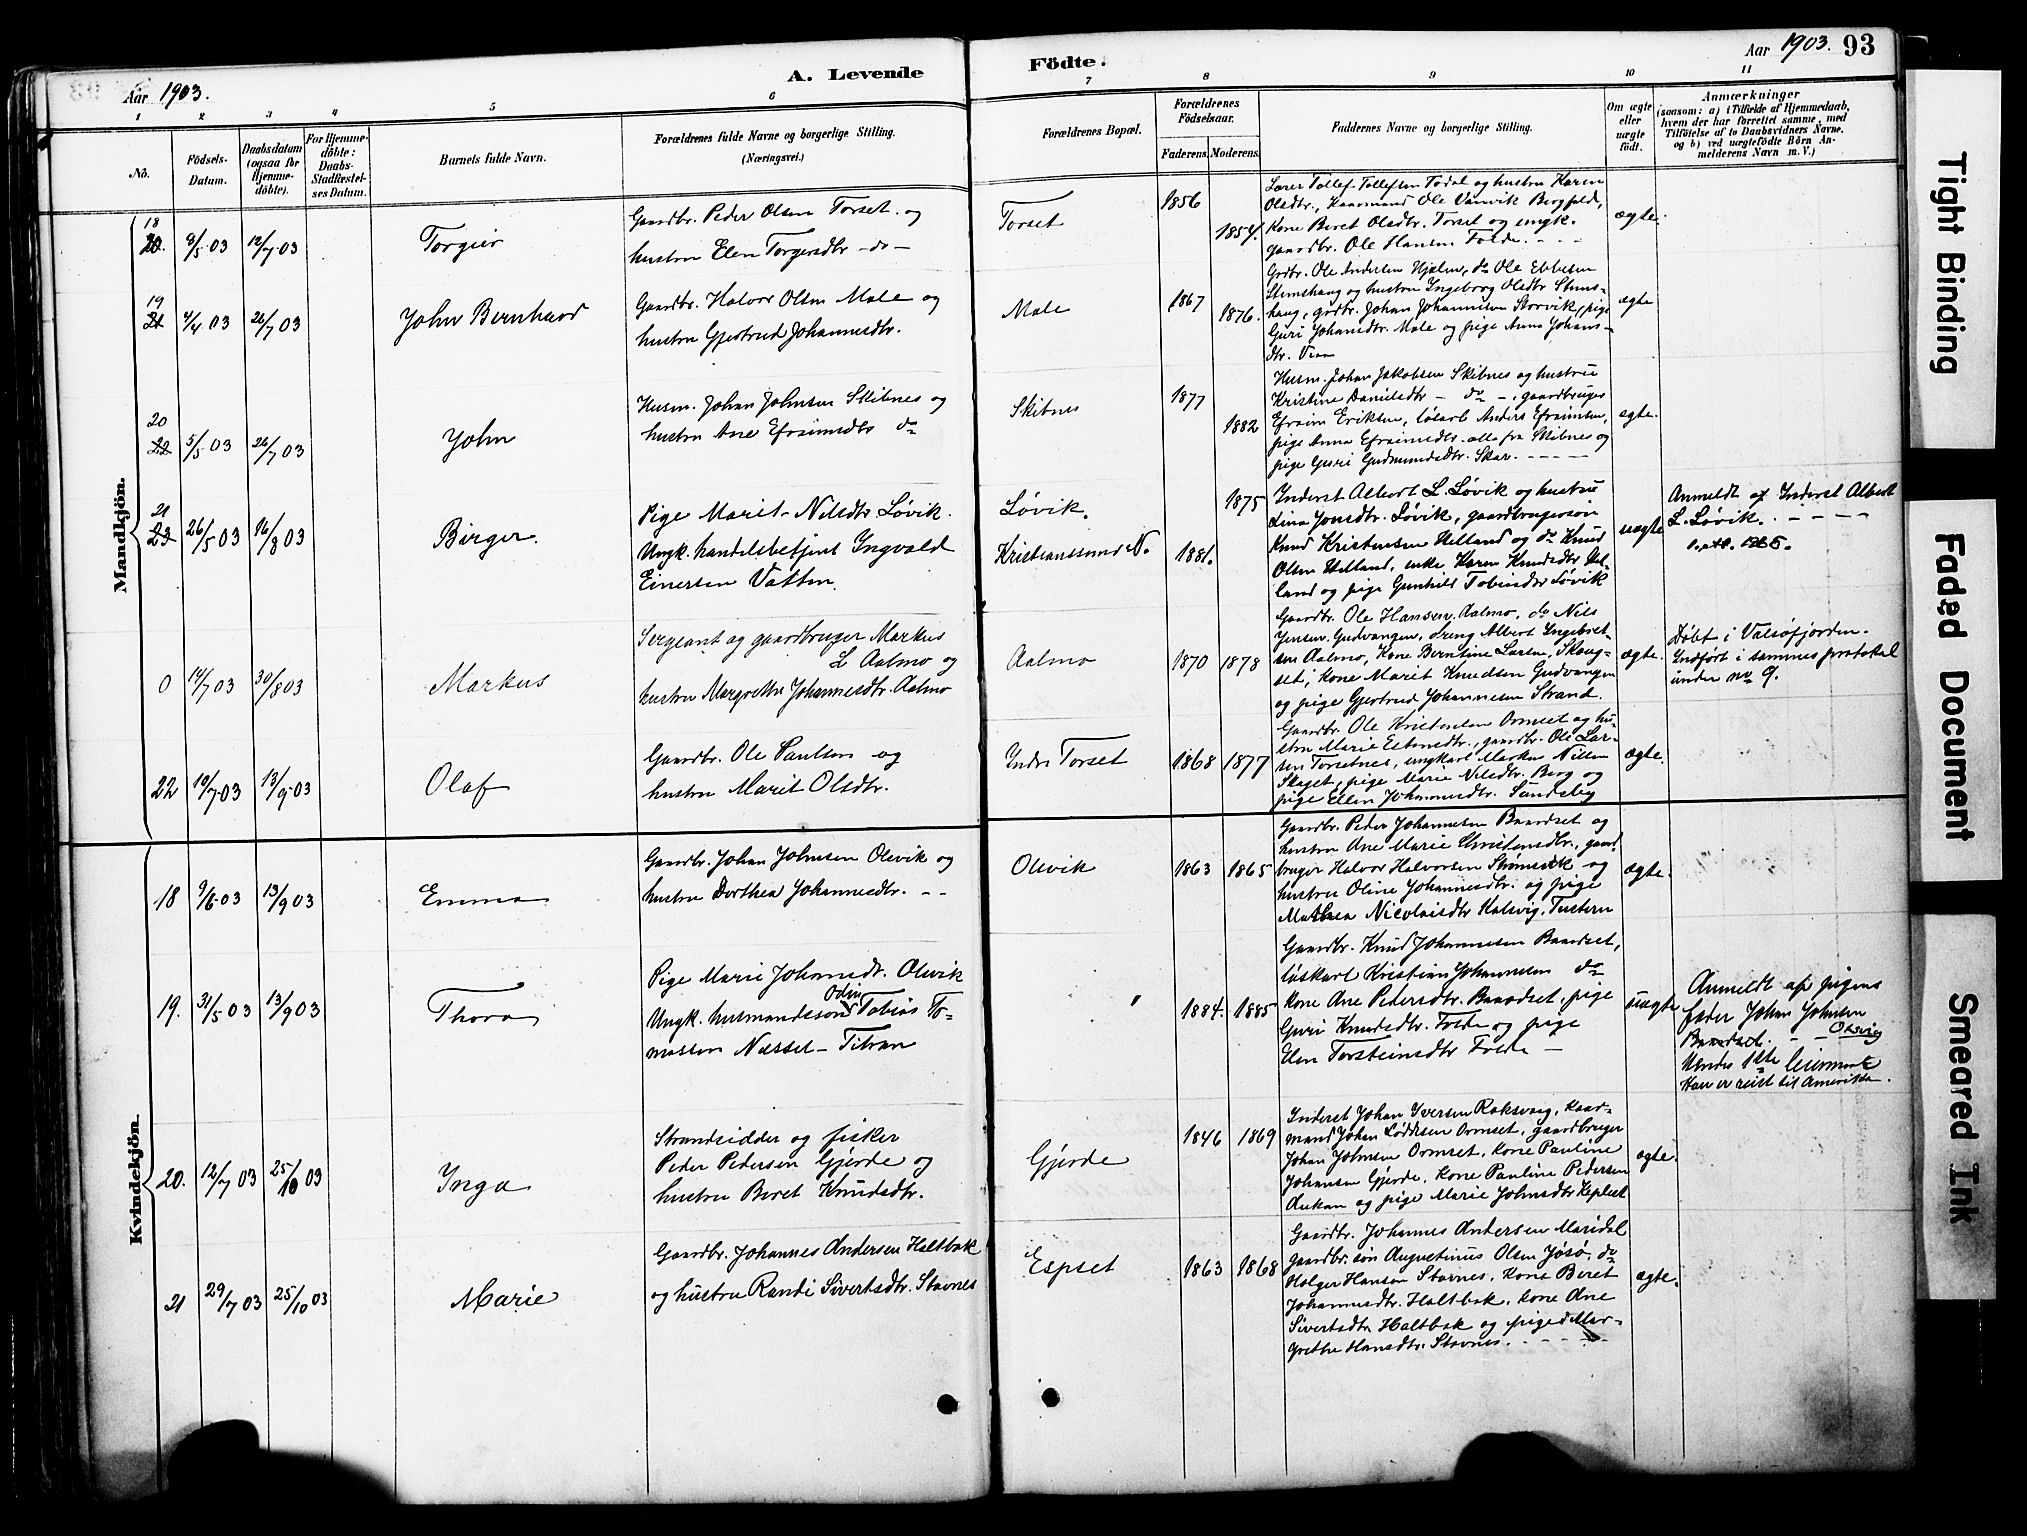 Aar 1903.
A. Levende
Födte.
Aar 1903. 93
1 2 3 4 5 6 7 8 9 10 11
No.
Födsels-
Datum.
Daabsdatum
(ogsaa for
Hjemme-
döbte).
For Hjemme-
döbte:
Daabs-
Stadfæstel-
ses Datum.
Barnets fulde Navn.
Forældrenes fulde Navne og borgerlige Stilling.
(Næringsvei.)
Forældrenes Bopæl.
Forældrenes
Födselsaar.
Faderens. Moderens.
Faddernes Navne og borgerlige Stilling.
Om ægte
eller
uægte
födt.
Anmærkninger
(saasom: a) i Tilfælde af Hjemmedaab,
hvem der har forrettet samme, med
Tilföielse af to Daabsvidners Navne,
og b) ved uægtefödte Börn An-
melderens Navn m. V.)
Mandkjön.
18
20. 8/5 03 12/7 03
Torgeir
Gaardbr. Peder Olsen Torset og
hustru Elen Torgersdbr -do-
Torset
1856
1854.
Lærer Tollef Tollefsen Todal og hustru Karen
Olsdbr., Kaarmand Ole Vaagvik Bergfald,
Kone Beret Olsdbr. Torset og ungk.
gaardbr. Ole Hansen Folde.
ægte.
19
21 4/4 03 26/7 03
John Bernhard
Gaardbr. Halvor Olsen Male og
hustru Gjertrud Johannesdbr.
Male
1867
1876.
Grdbr. Ole Andersen Hjelen, do Ole Ebbesen
Stenshaug og hustru Ingeborg Olsdbr Stens-
haug, grdbr. Johan Johannesen Storvik, pige
Guri Johnsdbr. Male og pige Anna Johans-
dbr.
ægte
20
22 5/5 03 26/7 03
John
Husm. Johan Johnsen Skibnes og
hustru Ane Efraimsdbr do
Skibnes
1877
1882
Husm. Johan Jakobsen Skibnes og hustru
Kristine Danielsdbr - do -, gaardbruger
Efraim Eriksen, løskarl Anders Efraimsen,
pige Anna Efraimsdbr. alle fra Skibnes og
pige Guri Gudmundsdbr. Skar.
ægte.
21
23 26/5 03 16/8 03
Birger.
Pige Marit Nilsdbr Løvik.
Ungk. handelsbetjent Ingvald
Einersen Vatten.
Løvik.
Kristianssund N.
1875
1881.
Inderst Albert L. Løvik og hustru
Lina Jonsdbr. Løvik, gaardbrugersøn
Knud Kristensen Helland og do Knud
Olsen Helland, enke Karen Knudsdbr Hel-
land og pige Gunhild Tobiasdbr Løvik
uægte
Anmeldt af Inderst Albert
L. Løvik.
0 14/7 03 30/8 03
Markus
Sergeant og gaardbruger Markus
L Aalmo og
hustru Margrethe Johannesdbr. Aalmo
Aalmo
1870 1878
Gaardbr. Ole Hansen Aalmo, do Nils
Jensen Gudvangen, dreng Albert Ingebret-
sen Aalmo, Kone Berntine Larsen, Skaug-
set, kone Marit Knudsen Gudvangen
og pige Gjertrud Johannesen Strand.
ægte.
Døbt i Valsøfjorden.
Indført i sammes protokol
under no 9.
22 19/7 03 13/9 03
Olaf
Gaardbr. Ole Paulson og
hustru Marit Olsdbr.
Indre Torset
1868 1877
Gaardbr. Ole Kristensen Ormset og hu-
stru Marie Estensdbr., gaardbr. Ole Lar-
sen Torsetnes, ungkarl Markus Nilsen
Skaget, pige Marie Nilsdbr. Berg og
pige Ellen Johannesdbr. Sandsby
ægte.
Kvindekjön.
18 9/6 03 13/9 03
Emma
Gaardbr. Johan Johnsen Olsvik og
hustru Dorthea Johannesdbr.
Olsvik
1863 1865
Gaardbr. Peder Johannesen Baardset og
hustru Ane Marie Christensdbr., gaard
bruger Halvor Halvorsen og
hustru Oline Johannesdbr. og pige
Mathea Nicolaisdbr Kalsvig, Tustern
ægte.
19. 31/5 03 13/9 03
Thora
Pige Marie Johansdr. Olsvik
Ungk. husmandssøn Odin Tobias To-
massen Næsset - Titran
"
1884. 1885
Gaardbr. Knud Johannesen Baardset,
løskarl Kristian Johannesen do
kone Ane Pedersdbr. Baardset, pige
Guri Knudsdbr. Folde og pige
Elen Torsteinsdbr Folde -
uægte
Anmeldt af pigens
fader Johan Johnsen
Baardset. Olsvig
Hendes 1ste leiermaal
Han er reist til Amerika.
20. 12/7 03 25/10 03
Inga
Strandsidder og fisker
Peder Pedersen Gjerde og
hustru Beret Knudsdbr.
Gjerde
1846 1869
Inderst Johan Iversen Roksvaag, kaar-
mand Johan Loddesen Ormset, gaardbruger
Johan Johnsen Ormset, kone Pauline
Johansen Gjerde, kone Pauline Pedersen
Aukan og pige Marie Johnsdbr
ægte.
21 29/7 03 25/10 03
Marie
Gaardbr. Johannes Andersen Haltbak
og hustru Randi Sivertsdbr. Stavnes
Espset
1863 1868
Gaardbr. Johannes Andersen Maridal
gaardbr. søn Augustinus Olsen Jøsø, do
Holger Hansen Stavnes, kone Beret
Johannesdbr. Haltbak, kone Ane
Sivertsdbr Haltbak og pige Mar-
grethe Hansdbr. Stavnes.
ægte.
Tight Binding
Faded Document
Smeared Ink